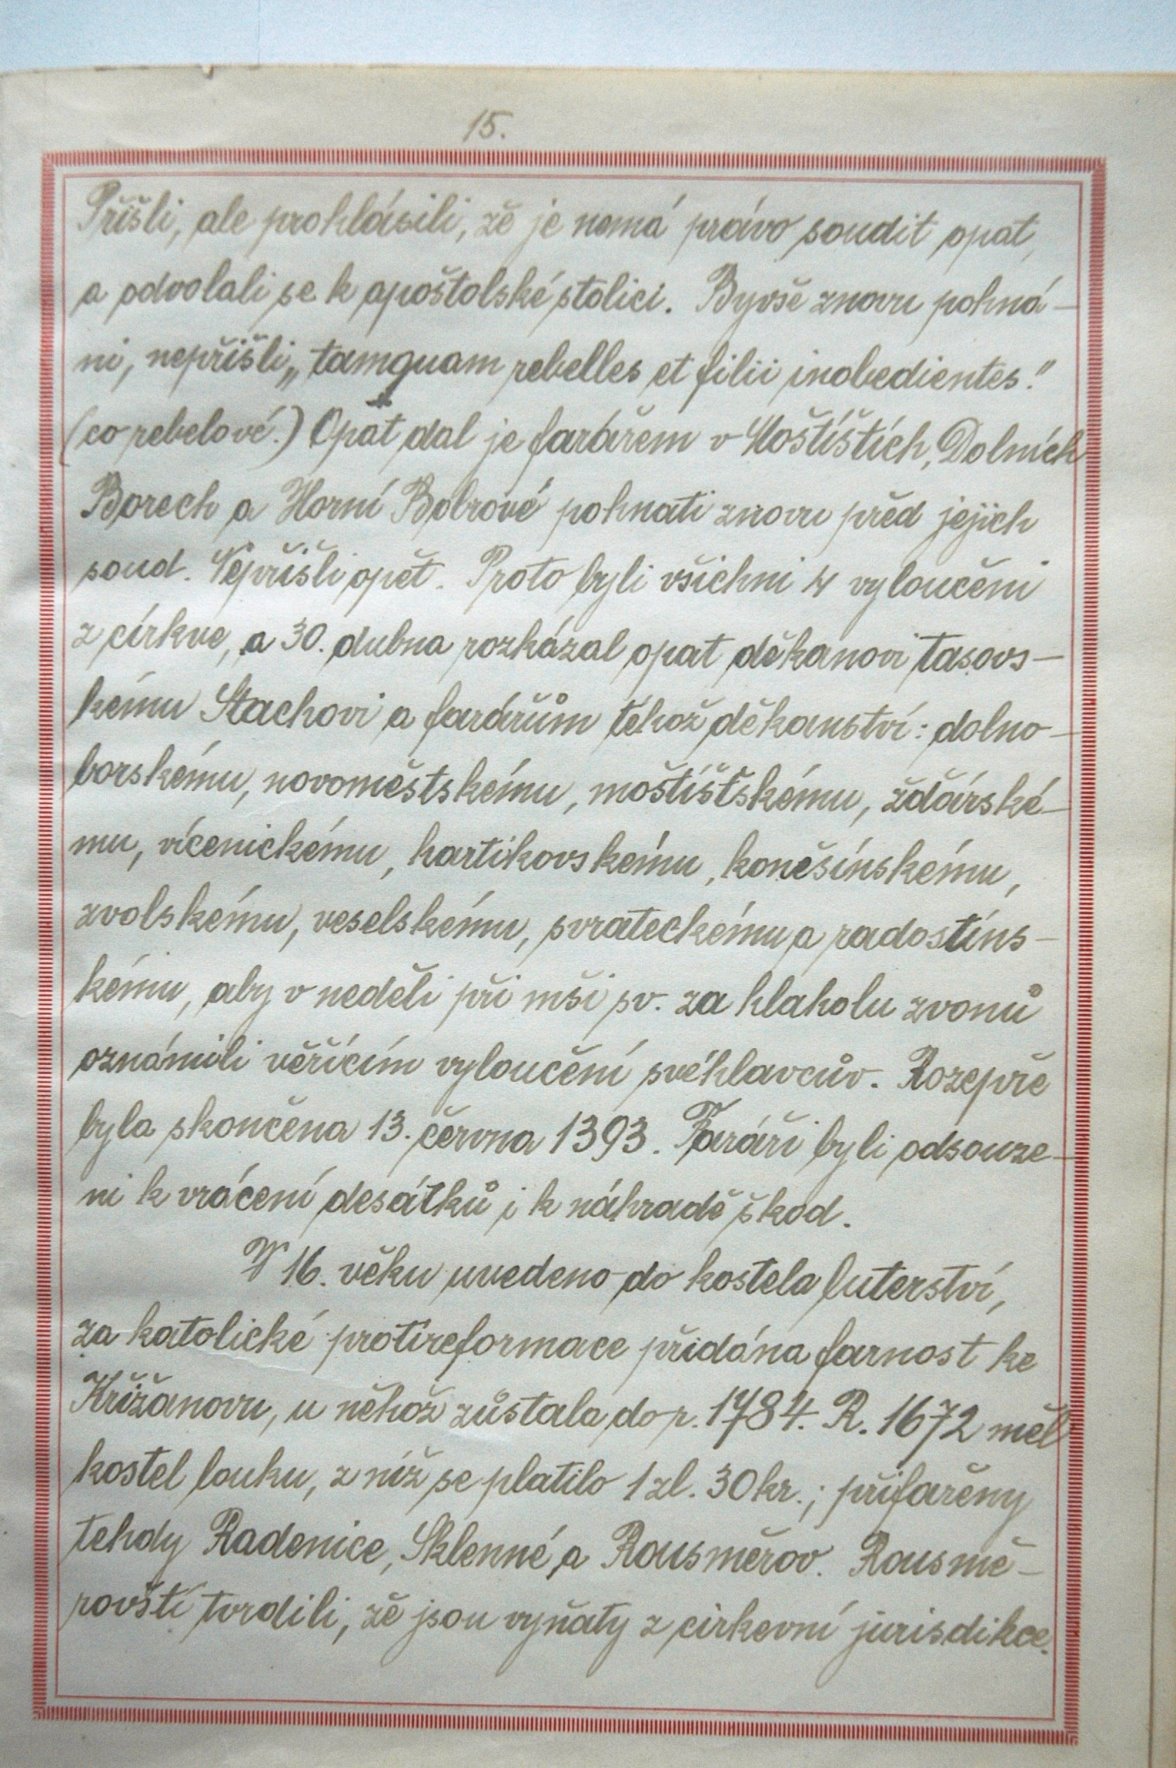 15.
Přišli, ale prohlásili, že je nemá právo soudit opat,
a odvolali se k apoštolské stolici. Byvše znovu pohná-
ni, nepřišli „tamquam rebelles et filii inobedientes."
(co rebelové.) Opat dal je farářem v Mostištích, Dolních
Borech a Horní Bobrové pohnati znovu před jejich
soud. Nepřišli opět. Proto byli všichni 4 vyloučeni
z církve, a 30. dubna rozkázal opat děkanovi tasovs-
kému Stachovi a farářům téhož děkanství: dolno-
borskému, novoměstskému, moštíšťskému, žďárské-
mu, vícenickému, hartikovskému, koněšínskému,
zvolskému, veselskému, svrateckému a radostíns-
kému, aby v neděli při mši sv. za hlaholu zvonů
oznámili věřícím vyloučení svéhlavcův. Rozepře
byla skončena 13. června 1393. Faráři byli odsouze-
ni k vrácení desátků i k náhradě škod.
V 16. věku uvedeno do kostela luterství,
za katolické protireformace přidána farnost ke
Křižanovu, u něhož zůstala do r. 1784. R. 1672 měl
kostel louku, z níž se platilo 1 zl. 30 kr.; přifařeny
tehdy Radenice, Sklenné a Rousměrov. Rousmě-
rovští tvrdili, že jsou vyňaty z církevní jurisdikce.